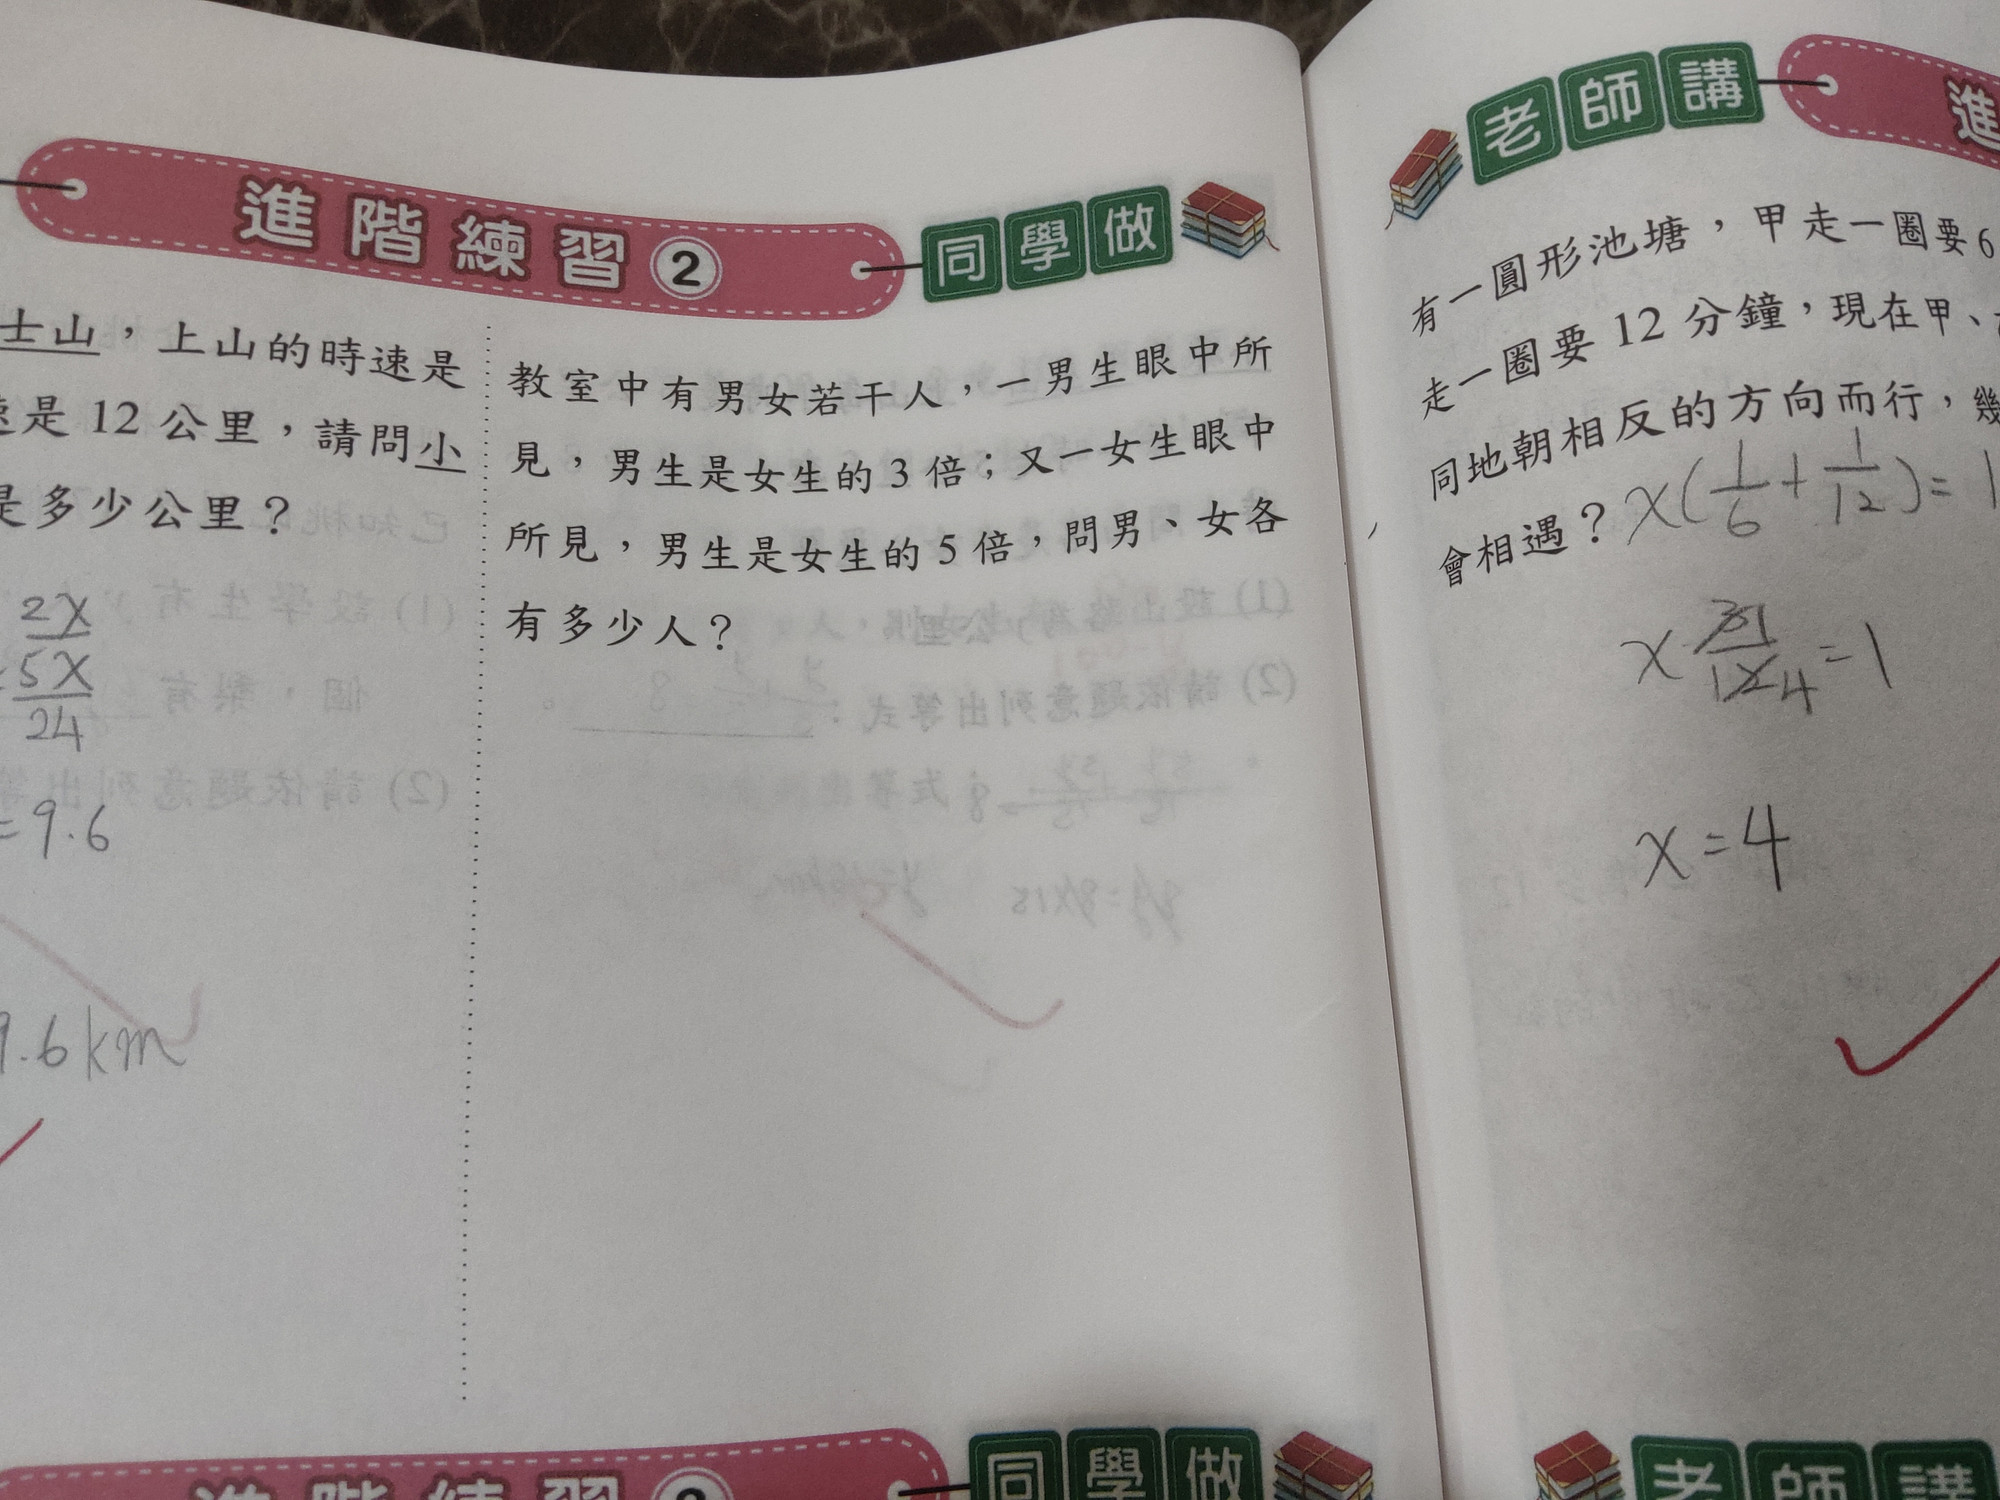 進階練習2
同學做
士山，上山的時速是
是 12 公里，請問小
是多少公里？
2X
5X
24
=9.6
9.6km
教室中有男女若干人，一男生眼中所
見，男生是女生的 3 倍；又一女生眼中
所見，男生是女生的 5 倍，問男、女各
有多少人？
老師講
進
有一圓形池塘，甲走一圈要 6
走一圈要 12 分鐘，現在甲、
同地朝相反的方向而行，幾
會相遇？ X(1/6+1/12)=1
X=4
進階練習
同學做
老師講